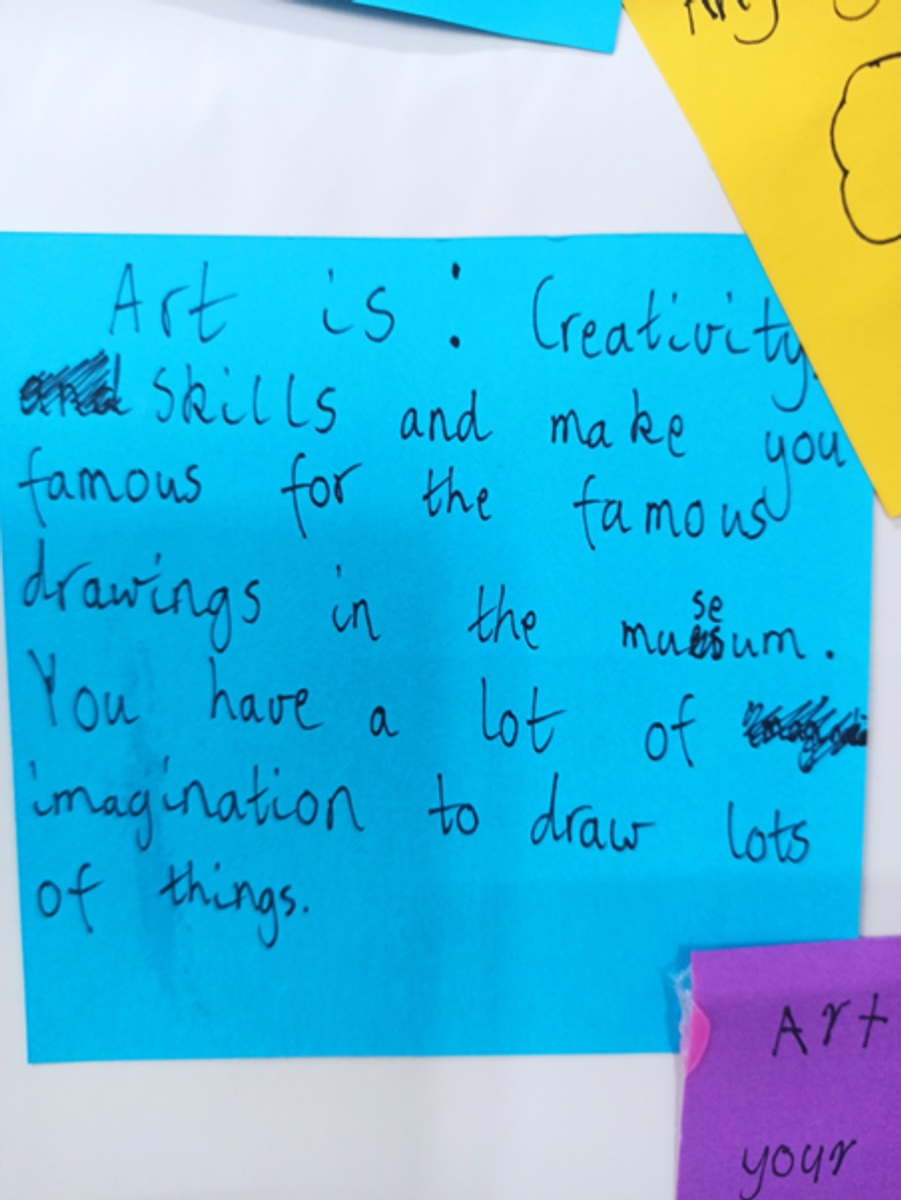 Art is: Creativity.
skills and make you
famous for the famous
drawings in the museum.
You have a lot of
imagination to draw lots
of things.
Art
your